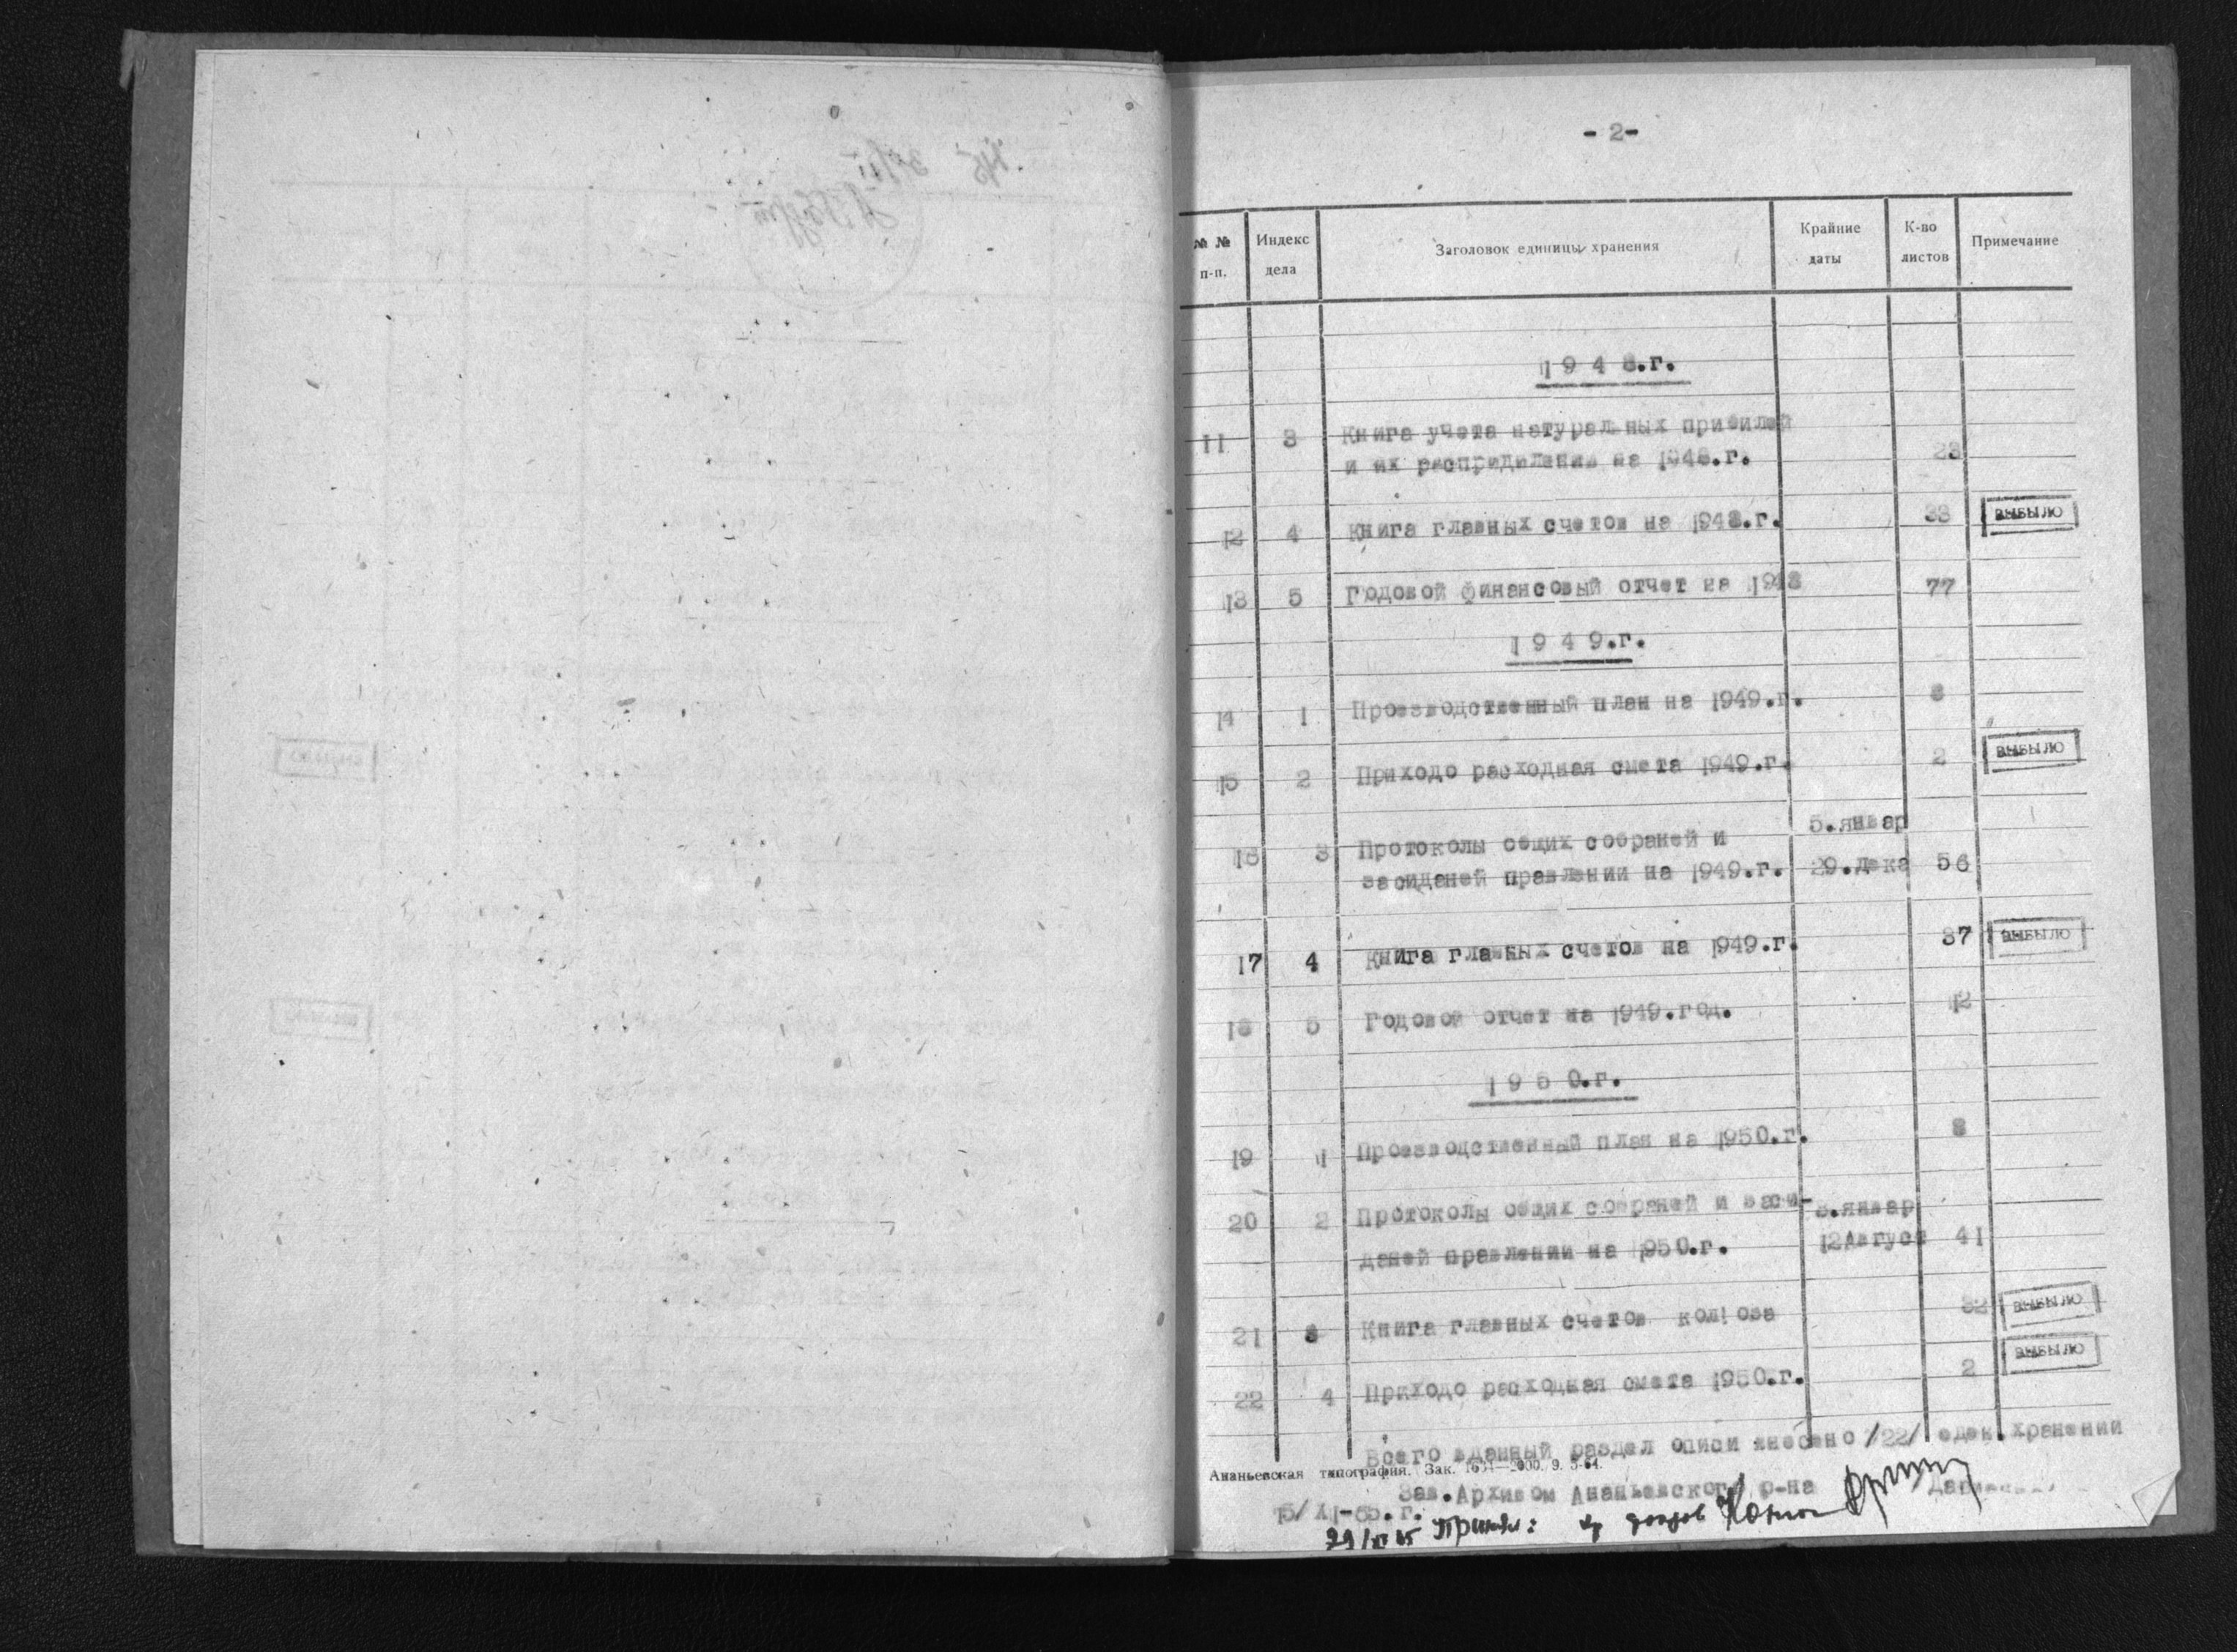 - 2-
№ № п-п. Индекс дела Заголовок единицы хранения Крайние даты К-во листов Примечание
1948.г.
11 3 Книга учета натуральных прибилей
и их распридиления на 1948.г. 23
12 4 Книга главных счетов на 1948.г. 33 ВЫБЫЛО
13 5 Годовой финансовый отчет на 1948 77
1949.г.
14 1 Производственный план на 1949.г. 8
15 2 Приходо расходная смета 1949.г. 2 ВЫБЫЛО
16 3 Протоколы общих собраней и 5.январ
засиданей правлении на 1949.г. 29.дека 56
17 4 Книга главных счетов на 1949.г. 37 ВЫБЫЛО
18 5 Годовой отчет на 1949.год. 12
1950.г.
19 1 Производственный план на 1950.г. 8
20 2 Протоколы общих собраней и заси- 3.январ
даней правлении на 1950.г. 12Август 41
21 3 Книга главных счетов 32 ВЫБЫЛО
22 4 Приходо расходная смета 1950.г. 2 ВЫБЫЛО
Всего вданный раздел описи внесено /22/ един.хранении
Ананьевская типография. Зак. 1634—2000. 9. 5-64.
Зав.Архивом Ананьевского р-на
15/XI-65.г.
29/XI 65 Принял: